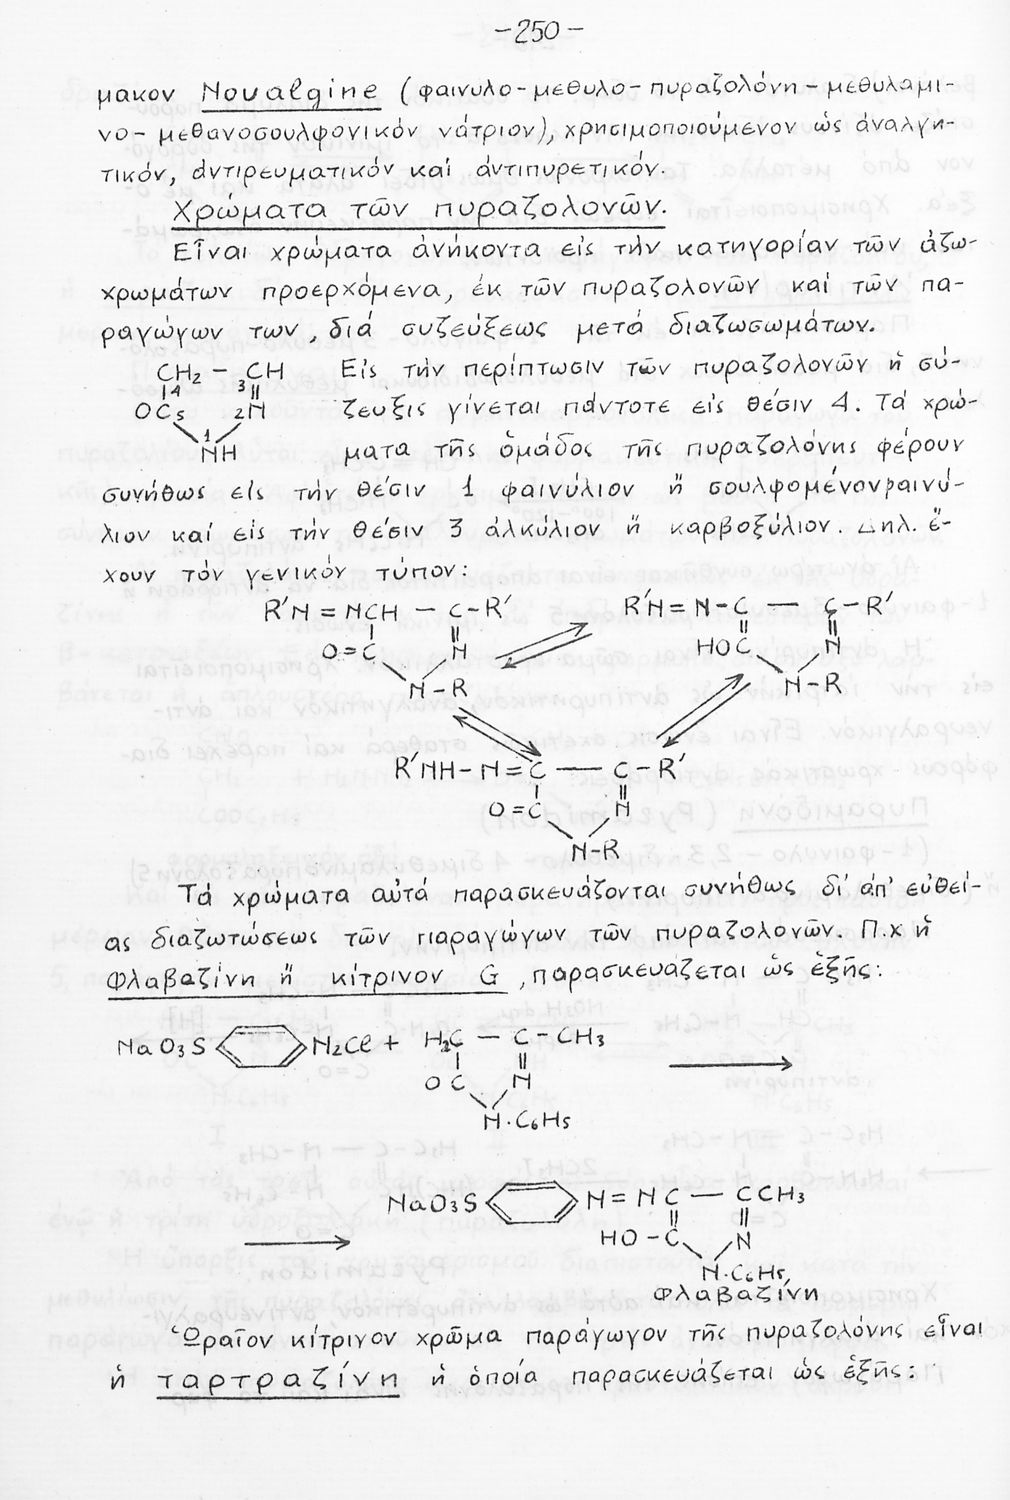 -250-
μακον Novalgine (φαινυλο-μεθυλο-πυραζολόνη-μεθυλαμι-
νο-μεθανοσουλφονικόν νάτριον), χρησιμοποιούμενον ὡς ἀναλγη-
τικόν, ἀντιρευματικόν καί ἀντιπυρετικόν.
Χρώματα τῶν πυραζολονῶν.
Εἶναι χρώματα ἀνήκοντα εἰς τήν κατηγορίαν τῶν ἀζω-
χρωμάτων προερχόμενα, ἐκ τῶν πυραζολονῶν καί τῶν πα-
ραγώγων των, διά συζεύξεως μετά διαζωσωμάτων.
CH2 - 3CH Εἰς τήν περίπτωσιν τῶν πυραζολονῶν ἡ σύ-
4
OC5 2N ζευξις γίνεται πάντοτε εἰς θέσιν 4. Τά χρώ-
1
NH ματα τῆς ὁμάδος τῆς πυραζολόνης φέρουν
συνήθως εἰς τήν θέσιν 1 φαινύλιον ἤ σουλφομένονφαινύ-
λιον καί εἰς τήν θέσιν 3 ἀλκύλιον ἤ καρβοξύλιον. Δηλ. ἔ-
χουν τόν γενικόν τύπον:
R'N=NCH - C-R' R'N=N-C — C-R'
O=C N HOC N
N-R N-R
R'NH-N=C — C-R'
O=C N
N-R
Τά χρώματα αὐτά παρασκευάζονται συνήθως δι' ἀπ' εὐθεί-
ας διαζωτώσεως τῶν παραγώγων τῶν πυραζολονῶν. Π.χ ἡ
Φλαβαζίνη ἤ κίτρινον G, παρασκευάζεται ὡς ἑξῆς:
NaO3S N2Cl + H2C - C-CH3
OC N
N·C6H5
NaO3S N=NC — CCH3
HO-C N
N·C6H5
Φλαβαζίνη
Ὡραῖον κίτρινον χρῶμα παράγωγον τῆς πυραζολόνης εἶναι
ἡ ταρτραζίνη ἡ ὁποία παρασκευάζεται ὡς ἑξῆς: